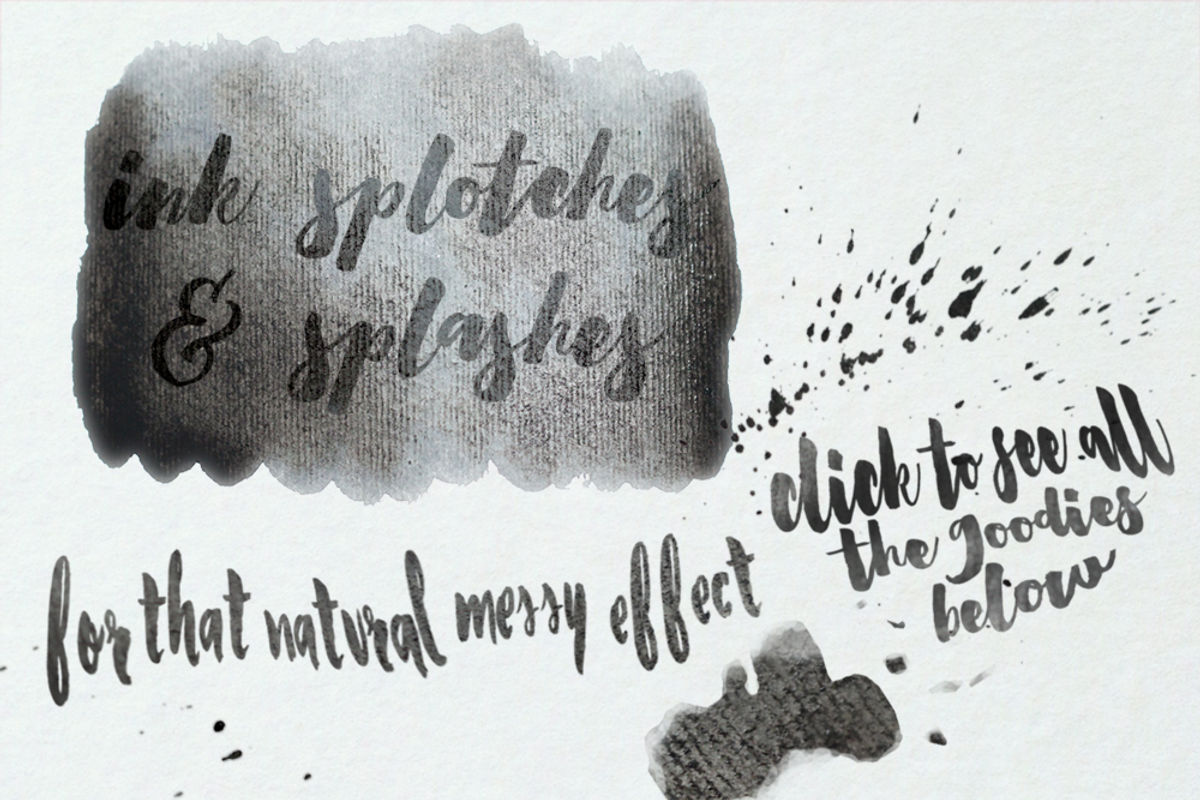 ink splotches
& splashes
click to see all
the goodies
below
for that natural messy effect